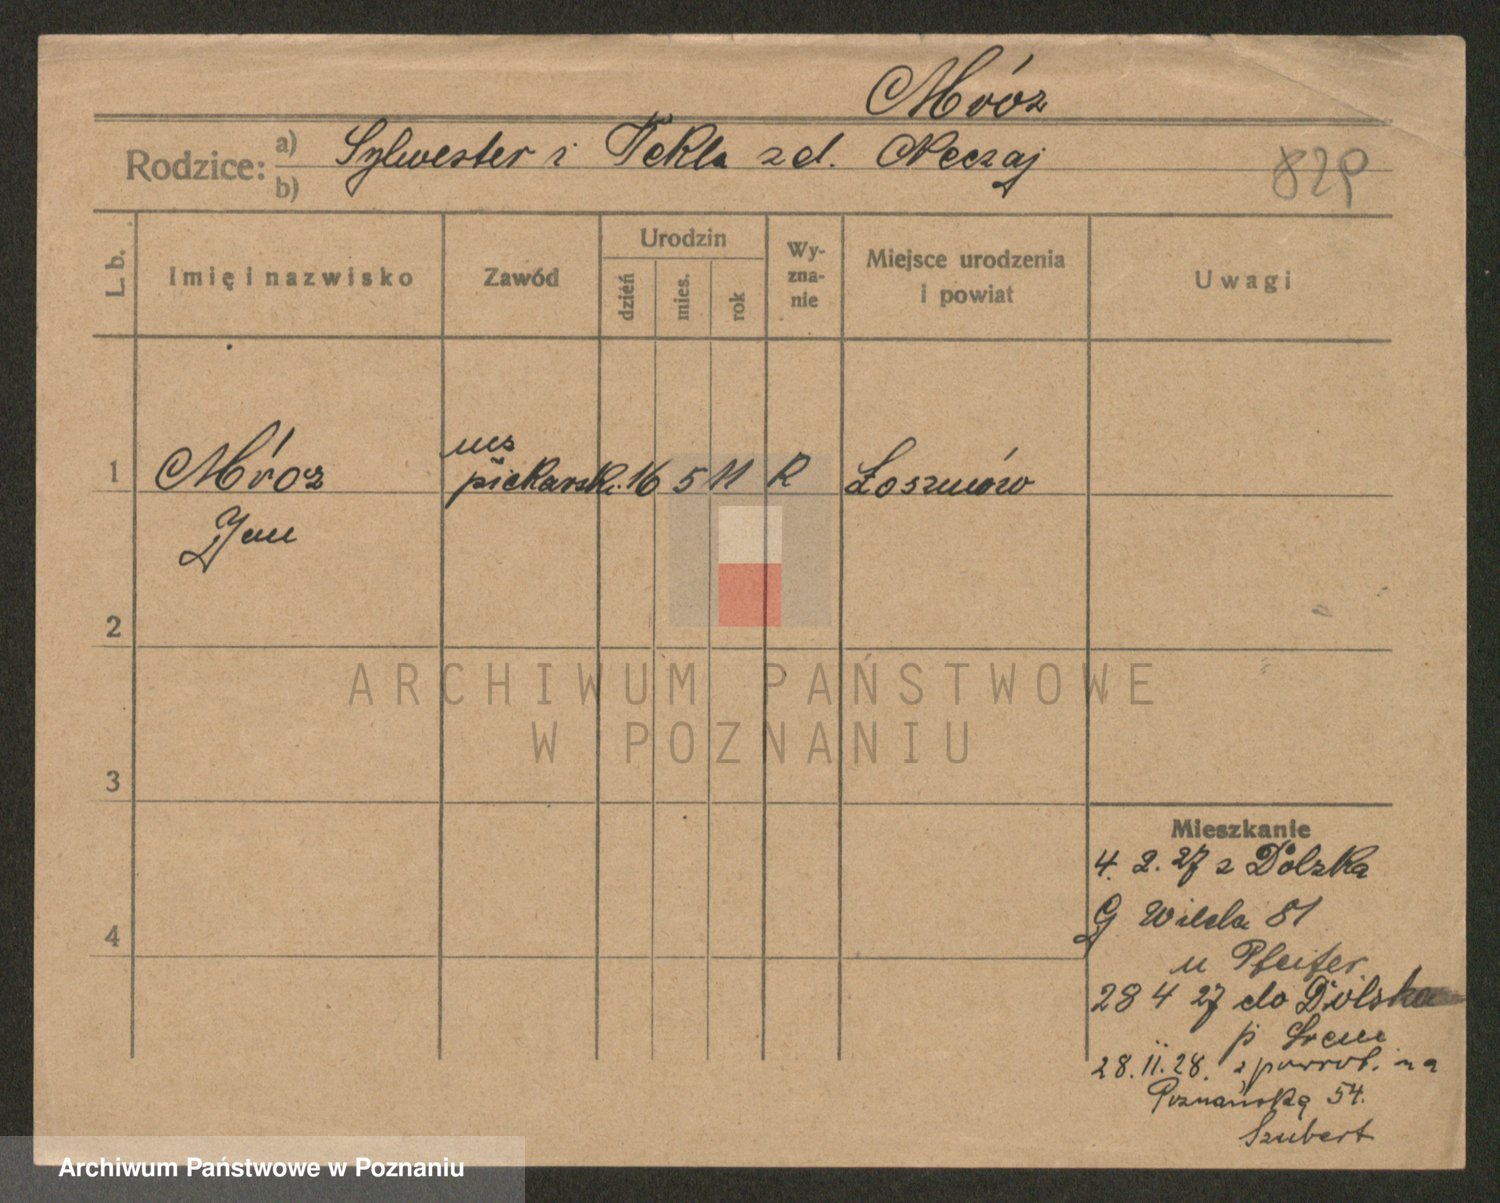 Mróz
Rodzice: a) Sylwester i Tekla zd. Neczaj
b)
82p
L. b.
Imię i nazwisko
Zawód
Urodzin
dzień
mies.
rok
Wy-
zna-
nie
Miejsce urodzenia
i powiat
Uwagi
ucz
1 Mróz piekarski. 16 5 11 R Łoszniów
Jan
2
3
4
ARCHIWUM PAŃSTWOWE
W POZNANIU
Mieszkanie
4. 2. 27 z Dolzka
G Wilda 81
u Pfeifer
28 4 27 do Dolska
p Śrem
28. II. 28. z powrot. na
Poznańską 54.
Szubert
Archiwum Państwowe w Poznaniu